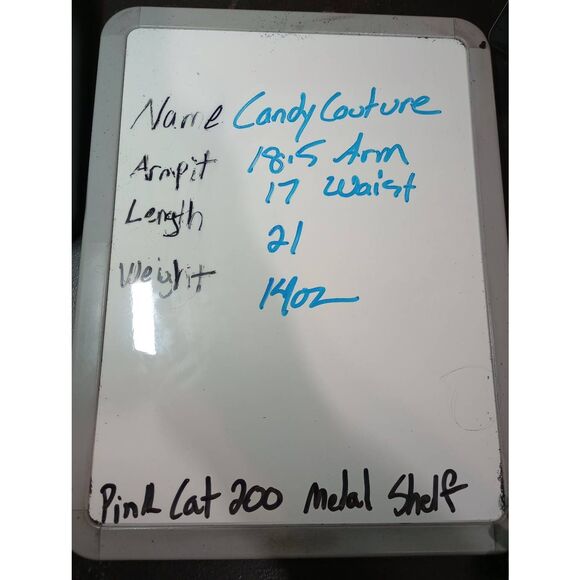 Name Candy Couture
Armpit 18.5 Arm
17 Waist
Length 21
Weight 14oz
Pink Cat 200 Metal Shelf